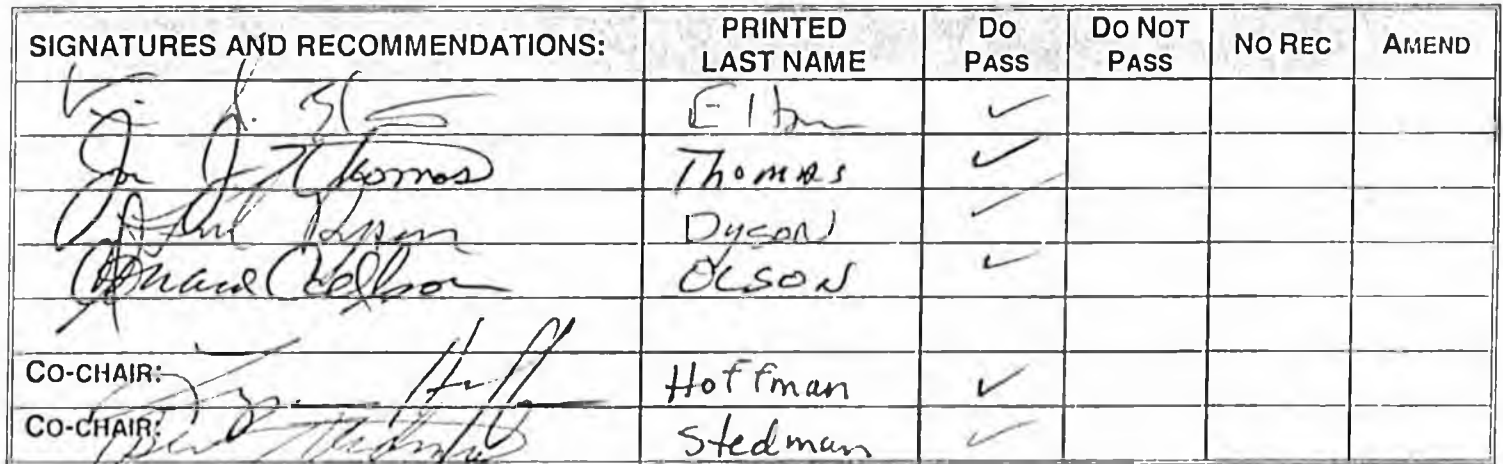 SIGNATURES AND RECOMMENDATIONS: PRINTED LAST NAME DO PASS DO NOT PASS NO REC AMEND
Elton ✓
Thomas Thomas ✓
Dyson ✓
OLSON ✓
CO-CHAIR: Hoffman ✓
CO-CHAIR: Stedman ✓